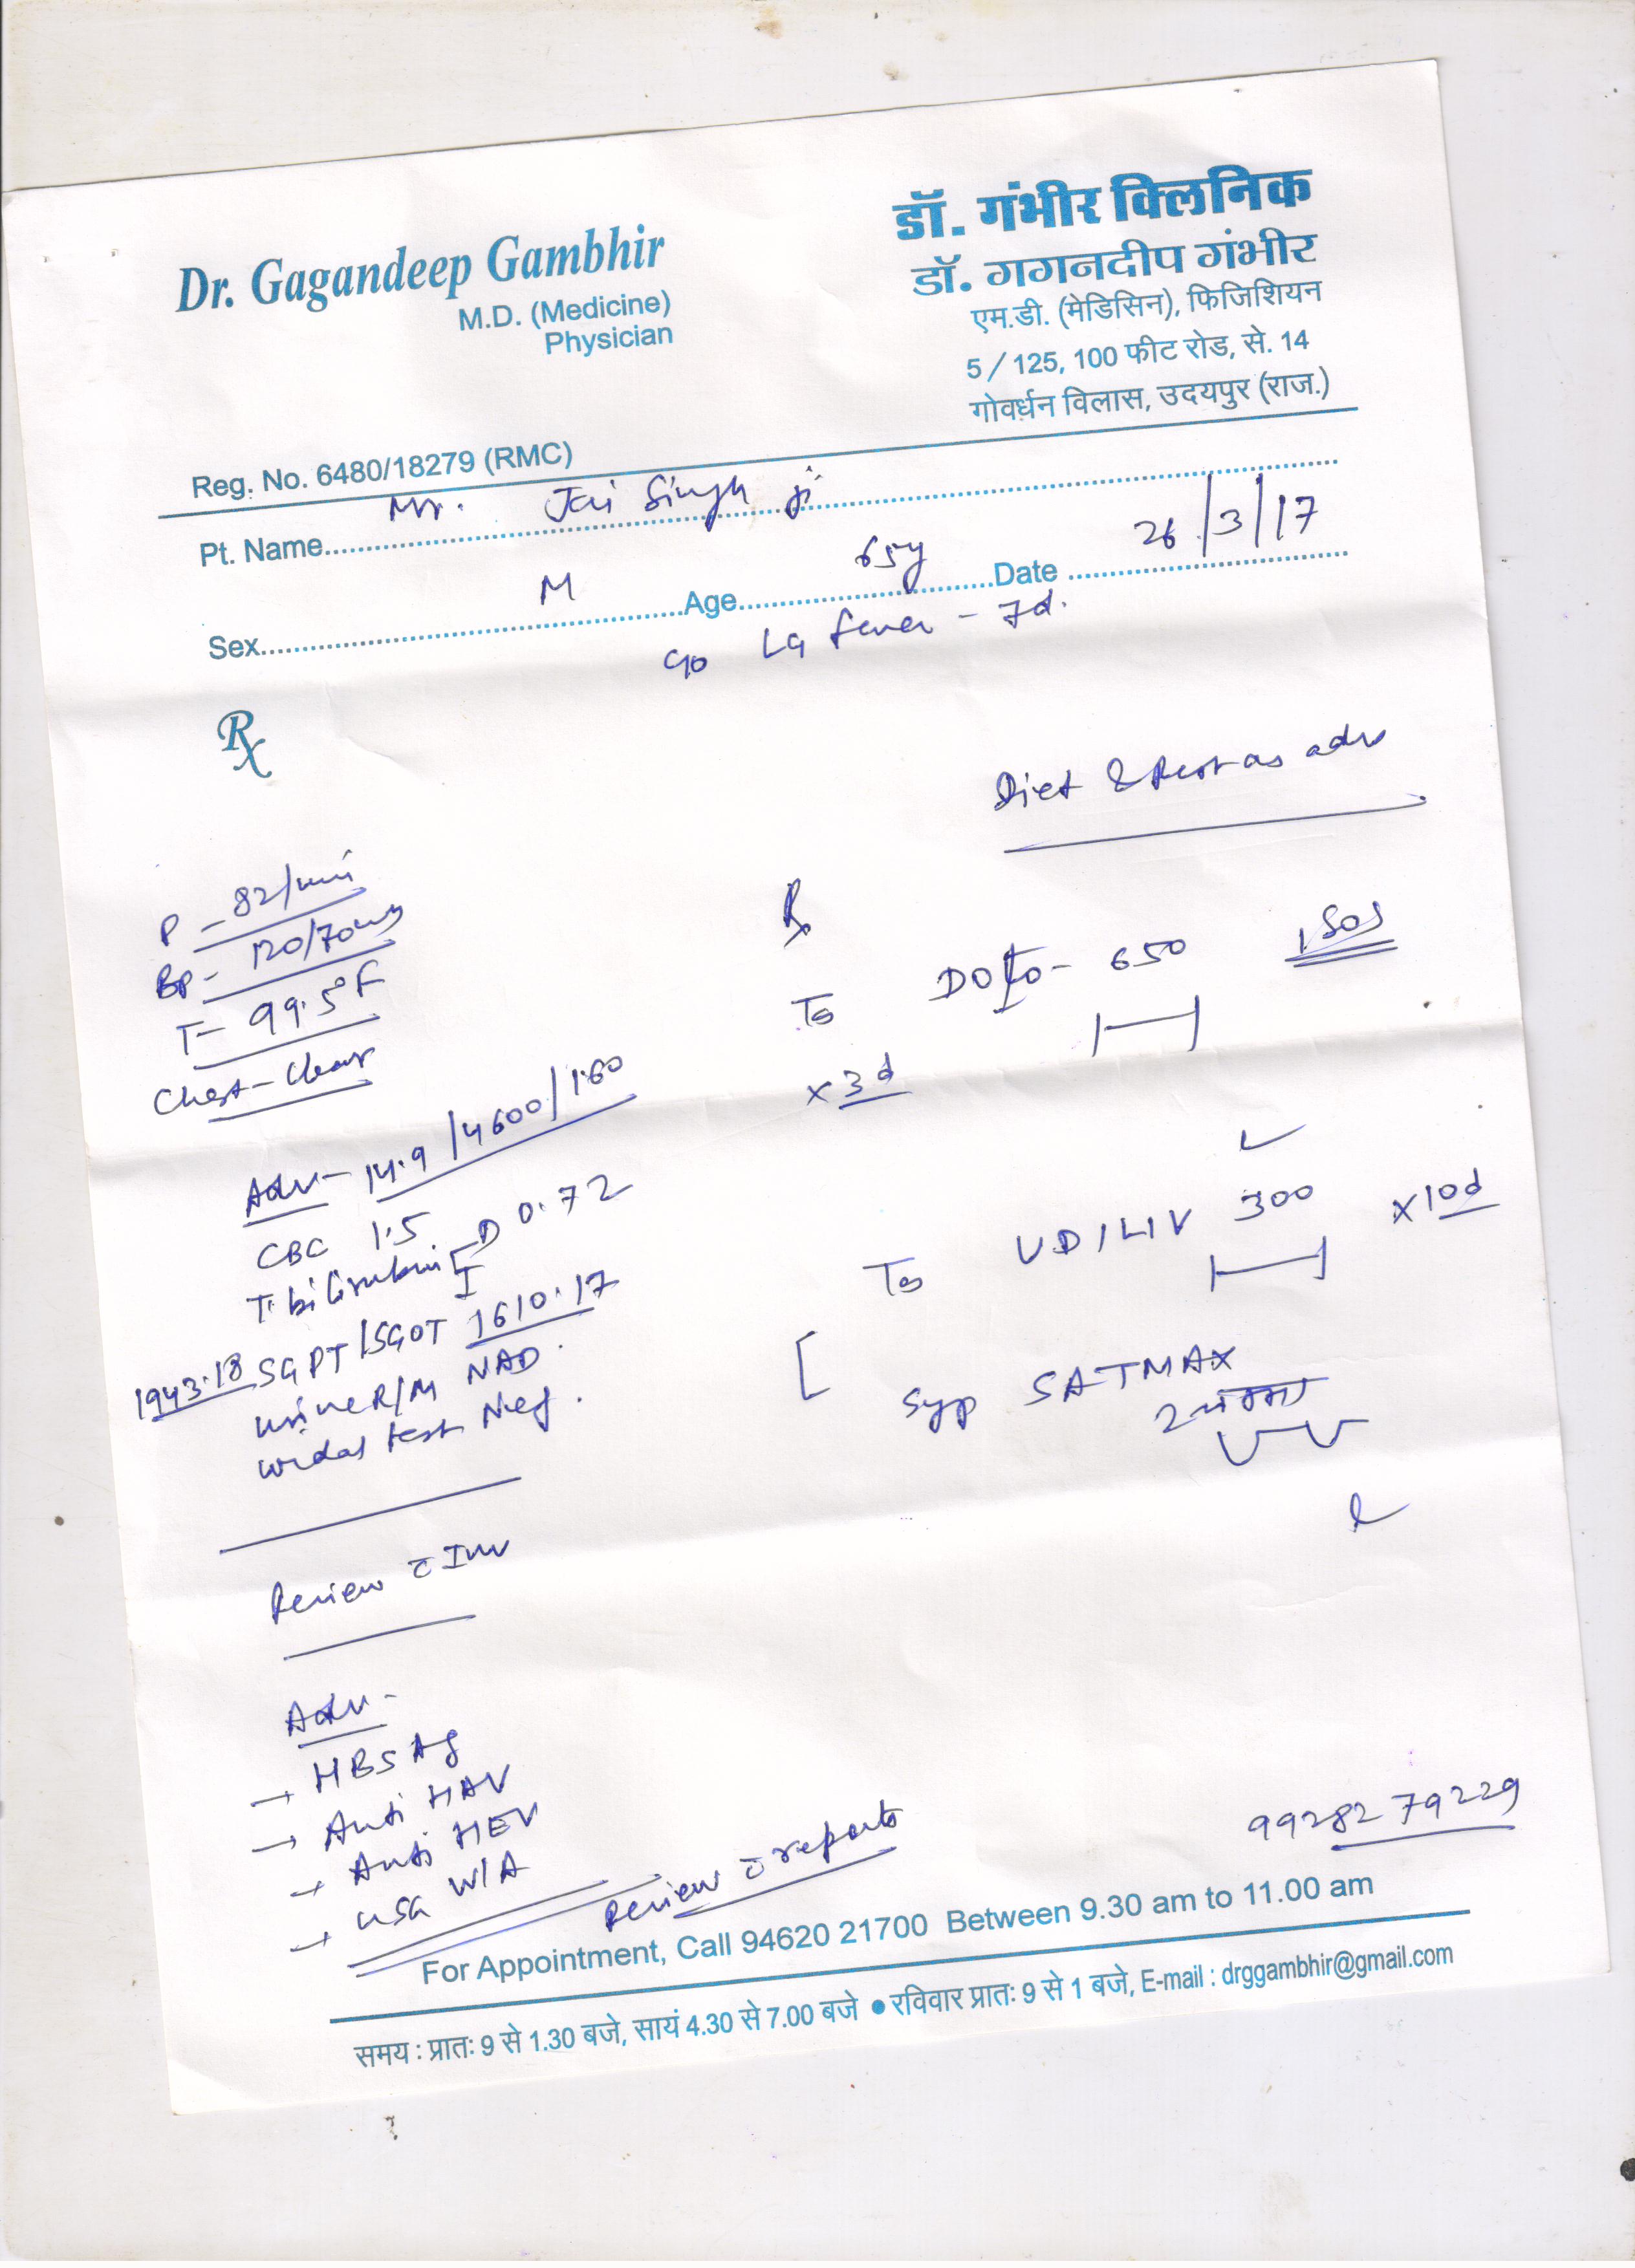 डॉ. गंभीर क्लिनिक
Dr. Gagandeep Gambhir
डॉ. गगनदीप गंभीर
M.D. (Medicine)
एम.डी. (मेडिसिन), फिजिशियन
Physician
5 / 125, 100 फीट रोड, से. 14
गोवर्धन विलास, उदयपुर (राज.)
Reg. No. 6480/18279 (RMC)
Pt. Name Mr. Jai Singh ji
Sex M Age 65y Date 26/3/17
c/o LG fever - 7d.
Rx
Diet & Rest as adv
P - 82/min
BP - 120/70
T - 99.5°F
Chest - Clear
Rx
Tb DOLO - 650 1 SOS
x 3d
Tb UDILIV 300 x 10d
Syp SATMAX
2 चम्मच
Adv - 14.9 / 4600 / 1.60
CBC 1.5
T. bilirubin D 0.72
I
1943.18 SGPT/SGOT 1610.17
urine R/M NAD.
widal test Neg.
Review c̄ Inv
Adv -
→ HBSAg
→ Anti HAV
→ Anti HEV
→ USG W/A
Review c̄ reports
99282 79229
For Appointment, Call 94620 21700 Between 9.30 am to 11.00 am
समय : प्रातः 9 से 1.30 बजे, सायं 4.30 से 7.00 बजे ● रविवार प्रातः 9 से 1 बजे, E-mail : drggambhir@gmail.com